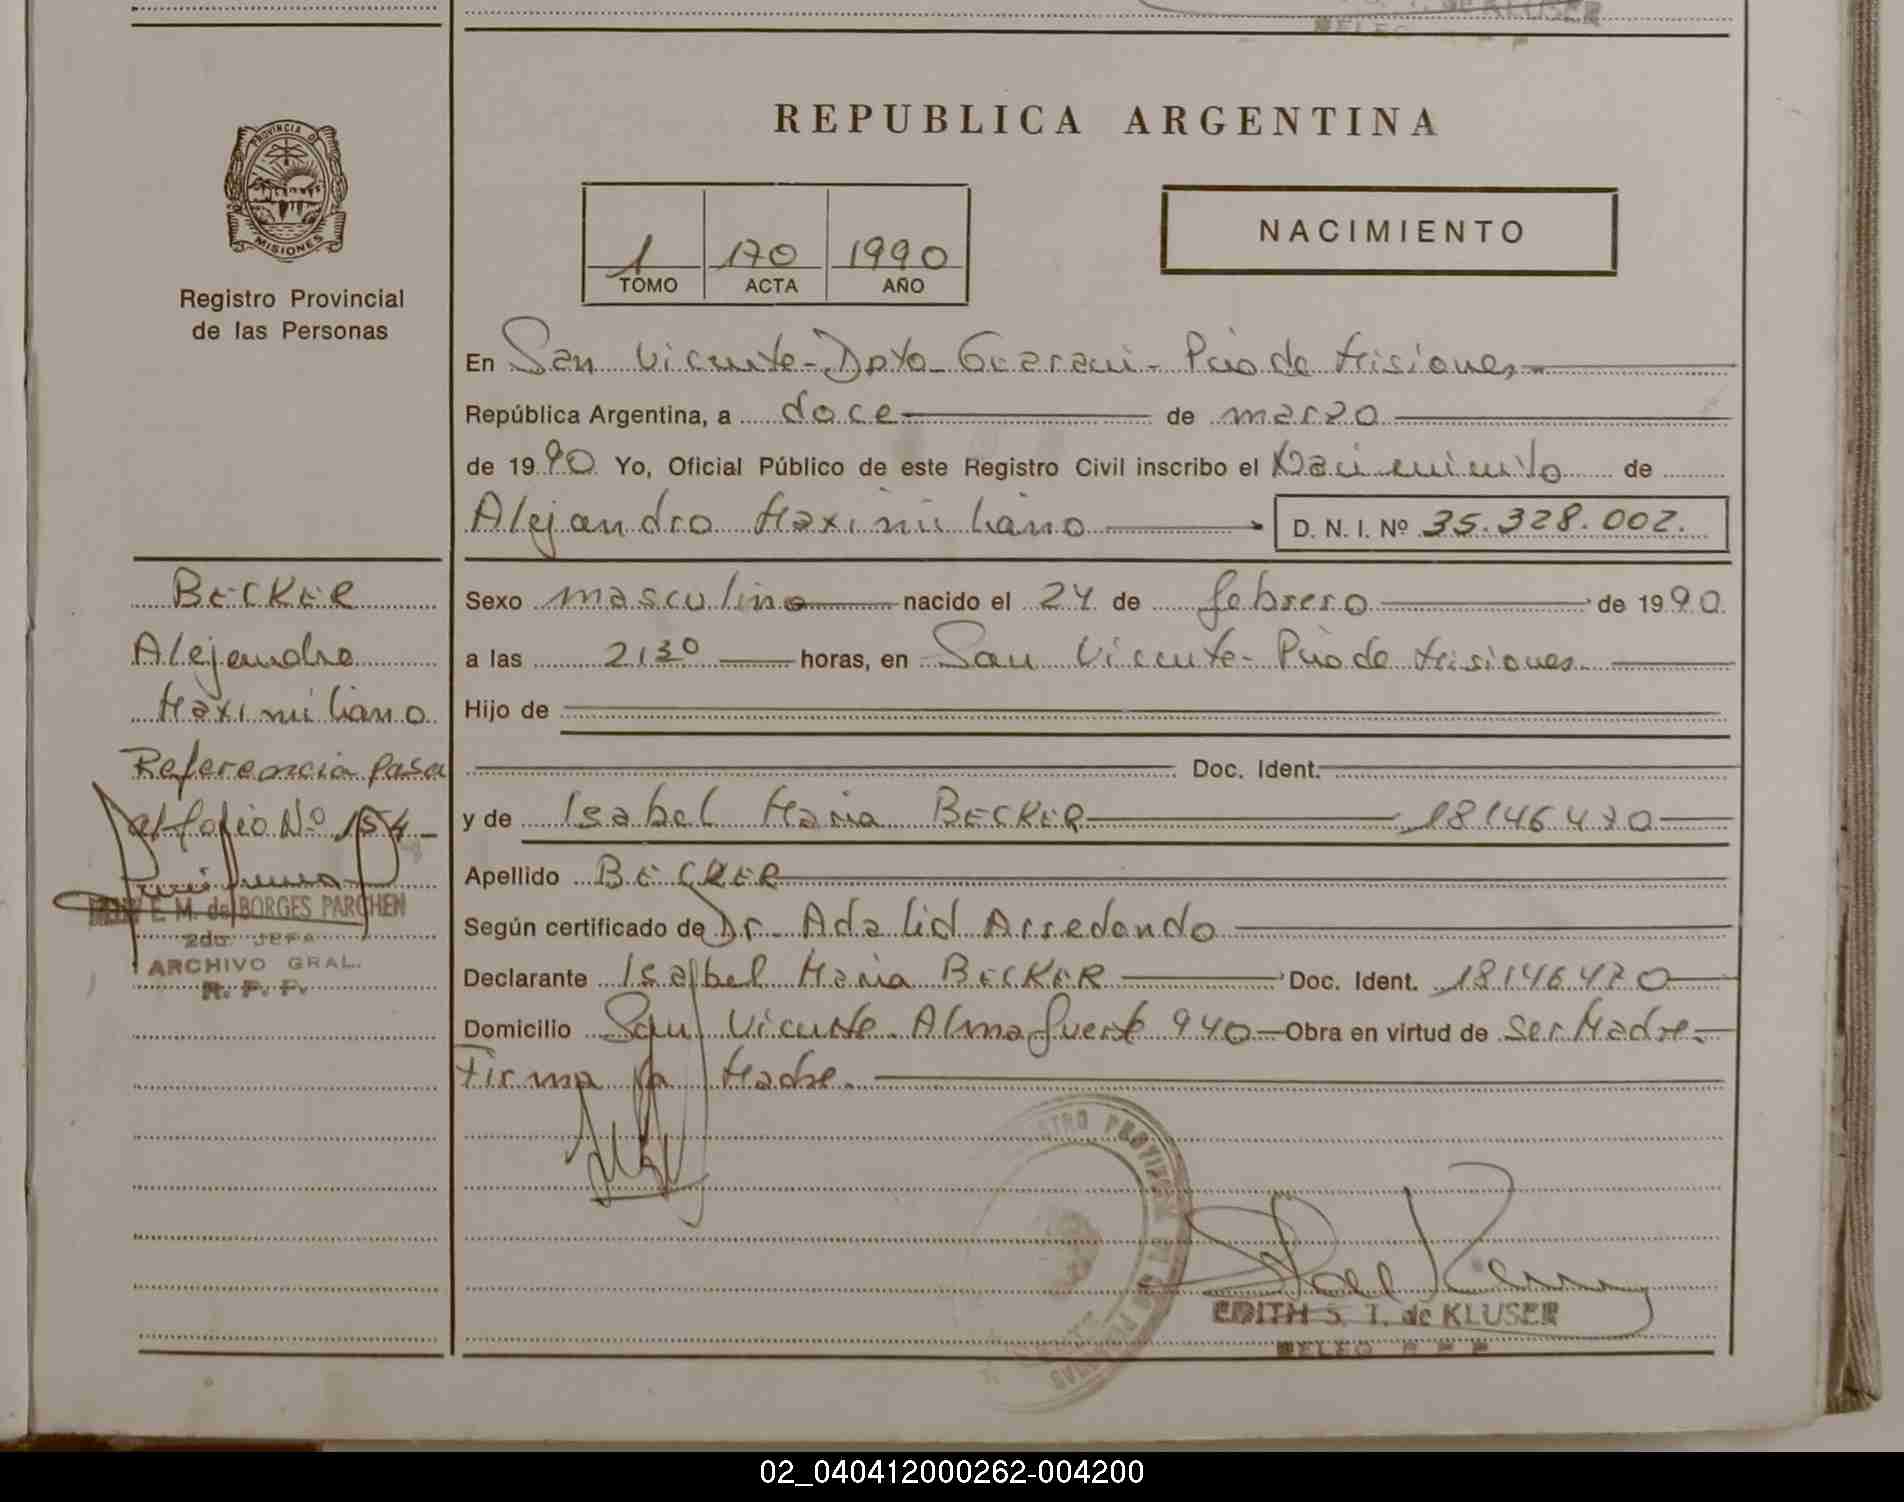 de KLUSER
REPUBLICA ARGENTINA
PROVINCIA D
MISIONES
Registro Provincial
de las Personas
1 170 1990
TOMO ACTA AÑO
NACIMIENTO
En San Vicente - Dpto Guarani - Pcia de Misiones
República Argentina, a doce de marzo
de 1990 Yo, Oficial Público de este Registro Civil inscribo el Nacimiento de
Alejandro Maximiliano D. N. I. Nº 35.328.002.
BECKER
Alejandro
Maximiliano
Referencia pasa
al folio Nº 154
E. M. de BORGES PARCHEN
2do JEFA
ARCHIVO GRAL.
R. P. P.
Sexo masculino nacido el 24 de febrero de 1990
a las 21 30 horas, en San Vicente - Pcia de Misiones
Hijo de
Doc. Ident.
y de Isabel Maria BECKER 18146470
Apellido BECKER
Según certificado de Dr. Adalid Arredondo
Declarante Isabel Maria BECKER Doc. Ident. 18146470
Domicilio San Vicente - Almafuerte 940 Obra en virtud de ser Madre.
Firma la Madre.
EDITH S. T. de KLUSER
02_040412000262-004200